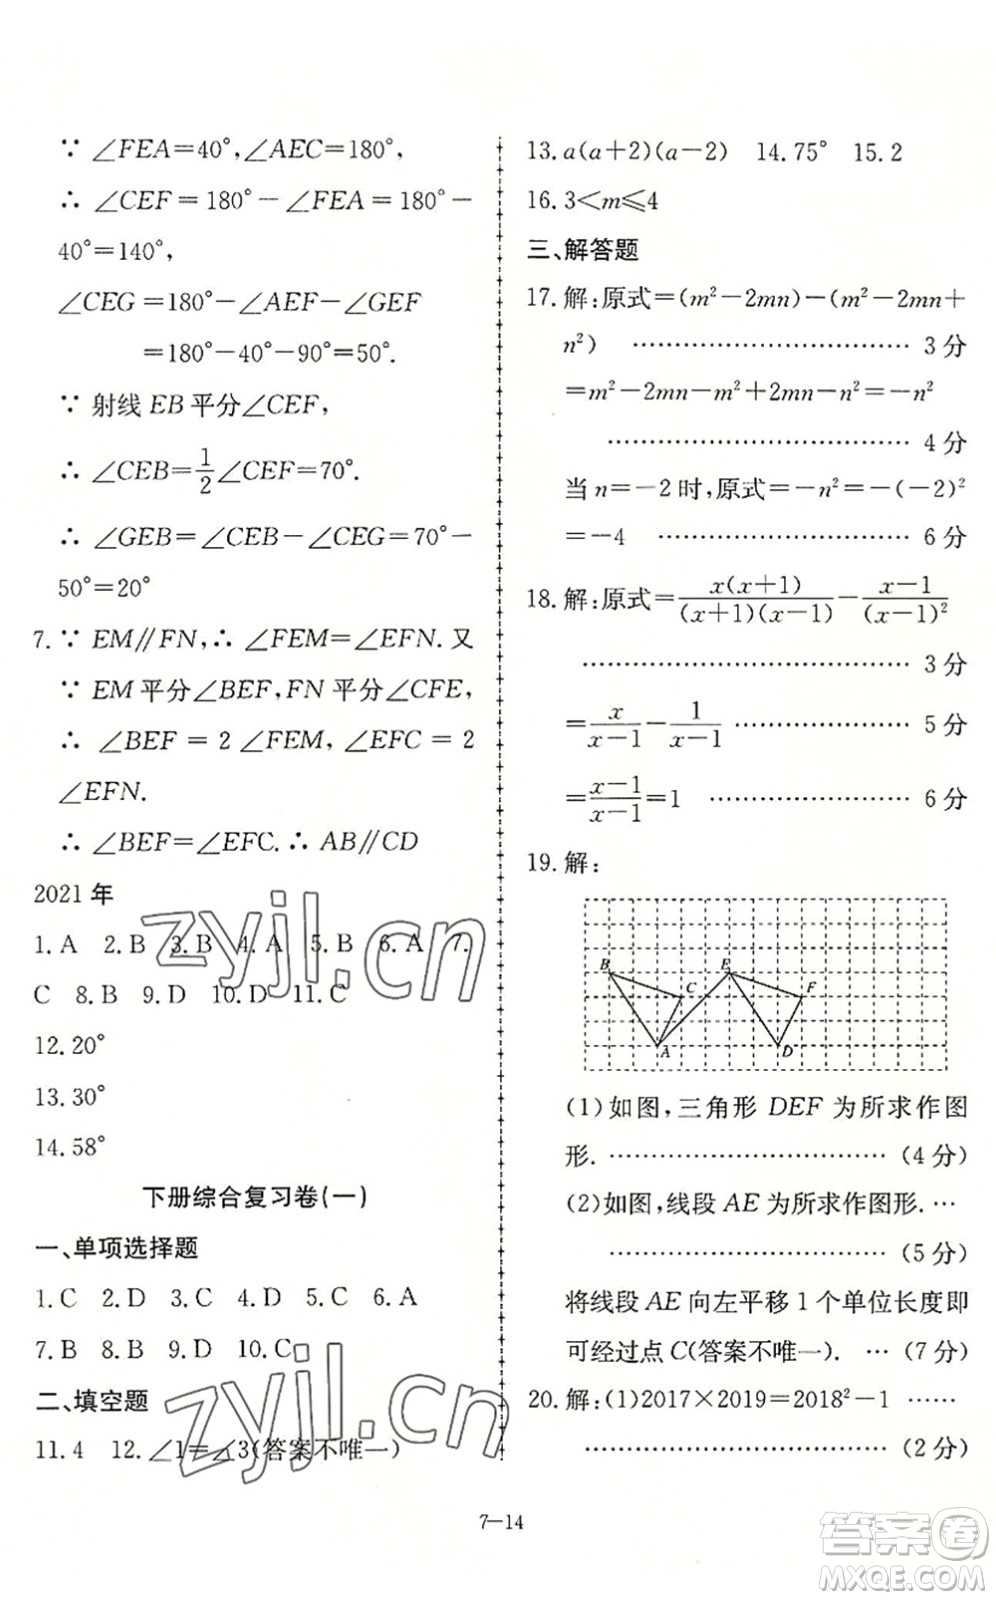 ∵ ∠FEA=40°,∠AEC=180°,
∴ ∠CEF = 180° − ∠FEA = 180° −
40°=140°,
∠CEG=180°−∠AEF−∠GEF
=180°−40°−90°=50°.
∵ 射线 EB 平分∠CEF,
∴ ∠CEB=1/2∠CEF=70°.
∴ ∠GEB=∠CEB−∠CEG=70°−
50°=20°
7. ∵ EM∥FN,∴ ∠FEM=∠EFN. 又
∵ EM 平分∠BEF,FN 平分∠CFE,
∴ ∠BEF = 2 ∠FEM, ∠EFC = 2
∠EFN.
∴ ∠BEF=∠EFC. ∴ AB∥CD
2021 年
1. A 2. B 3. B 4. A 5. B 6. A 7.
C 8. B 9. D 10. D 11. C
12. 20°
13. 30°
14. 58°
下册综合复习卷(一)
一、单项选择题
1. C 2. D 3. C 4. D 5. C 6. A
7. B 8. B 9. D 10. C
二、填空题
11. 4 12. ∠1=∠3(答案不唯一)
13. a(a+2)(a−2) 14. 75° 15. 2
16. 3<m≤4
三、解答题
17. 解:原式=(m²−2mn)−(m²−2mn+
n²) ………………………… 3 分
=m²−2mn−m²+2mn−n²=−n²
………………………… 4 分
当 n=−2 时,原式=−n²=−(−2)²
=−4 ………………………… 6 分
18. 解:原式=x(x+1)/(x+1)(x−1)−x−1/(x−1)²
………………………… 3 分
=x/x−1−1/x−1 ……………… 5 分
=x−1/x−1=1 ……………… 6 分
19. 解:
B E
C F
A D
(1)如图,三角形 DEF 为所求作图
形. ………………………… (4 分)
(2)如图,线段 AE 为所求作图形. …
………………………… (5 分)
将线段 AE 向左平移 1 个单位长度即
可经过点 C(答案不唯一). … (7 分)
20. 解:(1)2017×2019=2018²−1 ……
………………………… (2 分)
7−14
zyjl.cn
zyjl.cn
答案卷
MXQE.COM